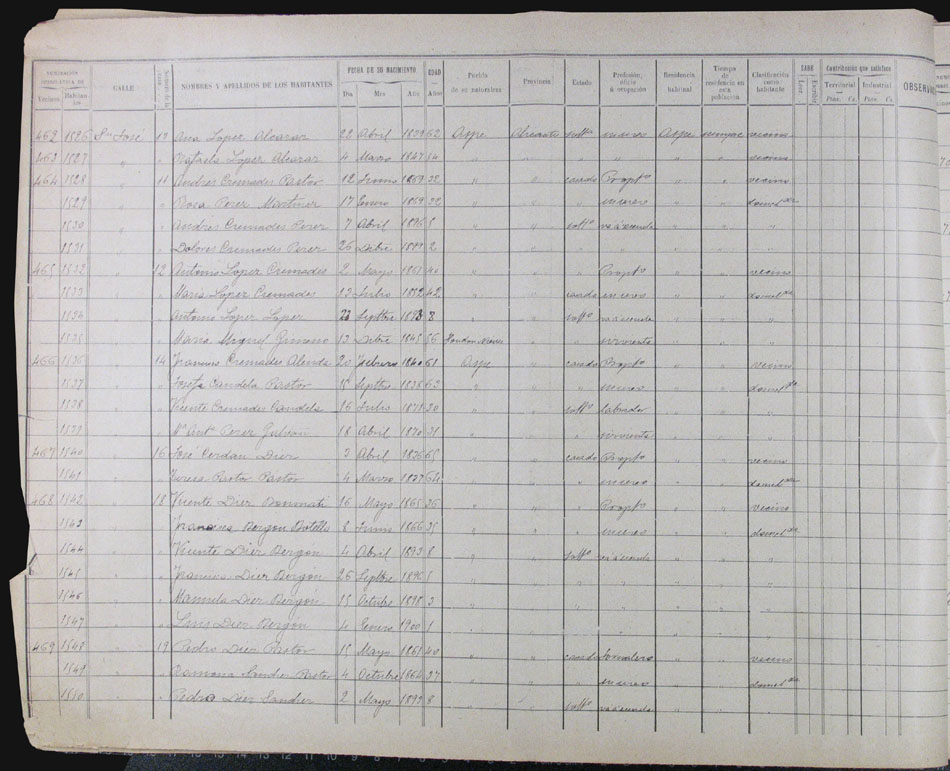 NUMERACIÓN CORRELATIVA DE Vecinos Habitantes CALLE NOMBRES Y APELLIDOS DE LOS HABITANTES FECHA DE SU NACIMIENTO Día Mes Año EDAD Años Pueblo de su naturaleza Provincia Estado Profesión, oficio ú ocupación Residencia habitual Tiempo de residencia en esta población Clasificación como habitante SABE Leer Escribir Contribución que satisface Territorial Ptas. Cs. Industrial Ptas. Cs. OBSERV
462 1526 Sn José 13 Ana Lopez Alcaraz 22 Abril 1839 62 Aspe Alicante solta su sexo Aspe siempre vecino
463 1527 " " Rafaela Lopez Alcaraz 4 Marzo 1847 54 " " " " " " vecino
464 1528 " 11 Andrés Cremades Pastor 12 Junio 1869 32 " " casado Proptо " " vecino
1529 " " Rosa Perez Martinez 17 Enero 1869 32 " " " su sexo " " domda
1530 " " Andrés Cremades Perez 7 Abril 1896 5 " " solto va á escuela " " "
1531 " " Dolores Cremades Perez 26 Dbre 1899 2 " " " " " " "
465 1532 " 12 Antonio Lopez Cremades 2 Mayo 1861 40 " " " Propto " " vecino
1533 " " Maria Lopez Cremades 13 Julio 1859 42 " " casado su sexo " " domda
1534 " " Antonio Lopez Lopez 23 Septbre 1893 8 " " solto va á escuela " " "
1535 " " Maria Miguel 13 Dbre 1845 56 Hondon Nieves " " sirvienta " " "
466 1536 " 14 Francisco Cremades Alenda 20 Febrero 1840 61 Aspe " casado Propto " " vecino
1537 " " Josefa Candela Pastor 15 Septbre 1838 63 " " " su sexo " " domda
1538 " " Vicente Cremades Candela 16 Julio 1871 30 " " solto labrador " " "
1539 " " Ma Anta Perez 18 Abril 1870 31 " " " sirvienta " " "
467 1540 " 16 José Cerdán Diez 3 Abril 1836 65 " " casado Propto " " vecino
1541 " " Teresa Pastor Pastor 4 Marzo 1837 64 " " " su sexo " " domda
468 1542 " 18 Vicente Diez Bonmatí 16 Mayo 1865 36 " " " Propto " " vecino
1543 " " Francisca Bergon Botella 8 Junio 1866 35 " " " su sexo " " domda
1544 " " Vicente Diez Bergon 4 Abril 1893 8 " " solto va á escuela " " "
1545 " " Francisca Diez Bergon 25 Septbre 1896 5 " " " " " " "
1546 " " Manuela Diez Bergon 15 Octubre 1898 3 " " " " " " "
1547 " " Luis Diez Bergon 4 Enero 1900 1 " " " " " " "
469 1548 " 19 Pedro Diez Pastor 15 Mayo 1861 40 " " casado Jornalero " " vecino
1549 " " Ramona Sander Pastor 4 Octubre 1864 37 " " " su sexo " " domda
1550 " " Pedro Diez Sander 2 Mayo 1893 8 " " solto va á escuela " " "